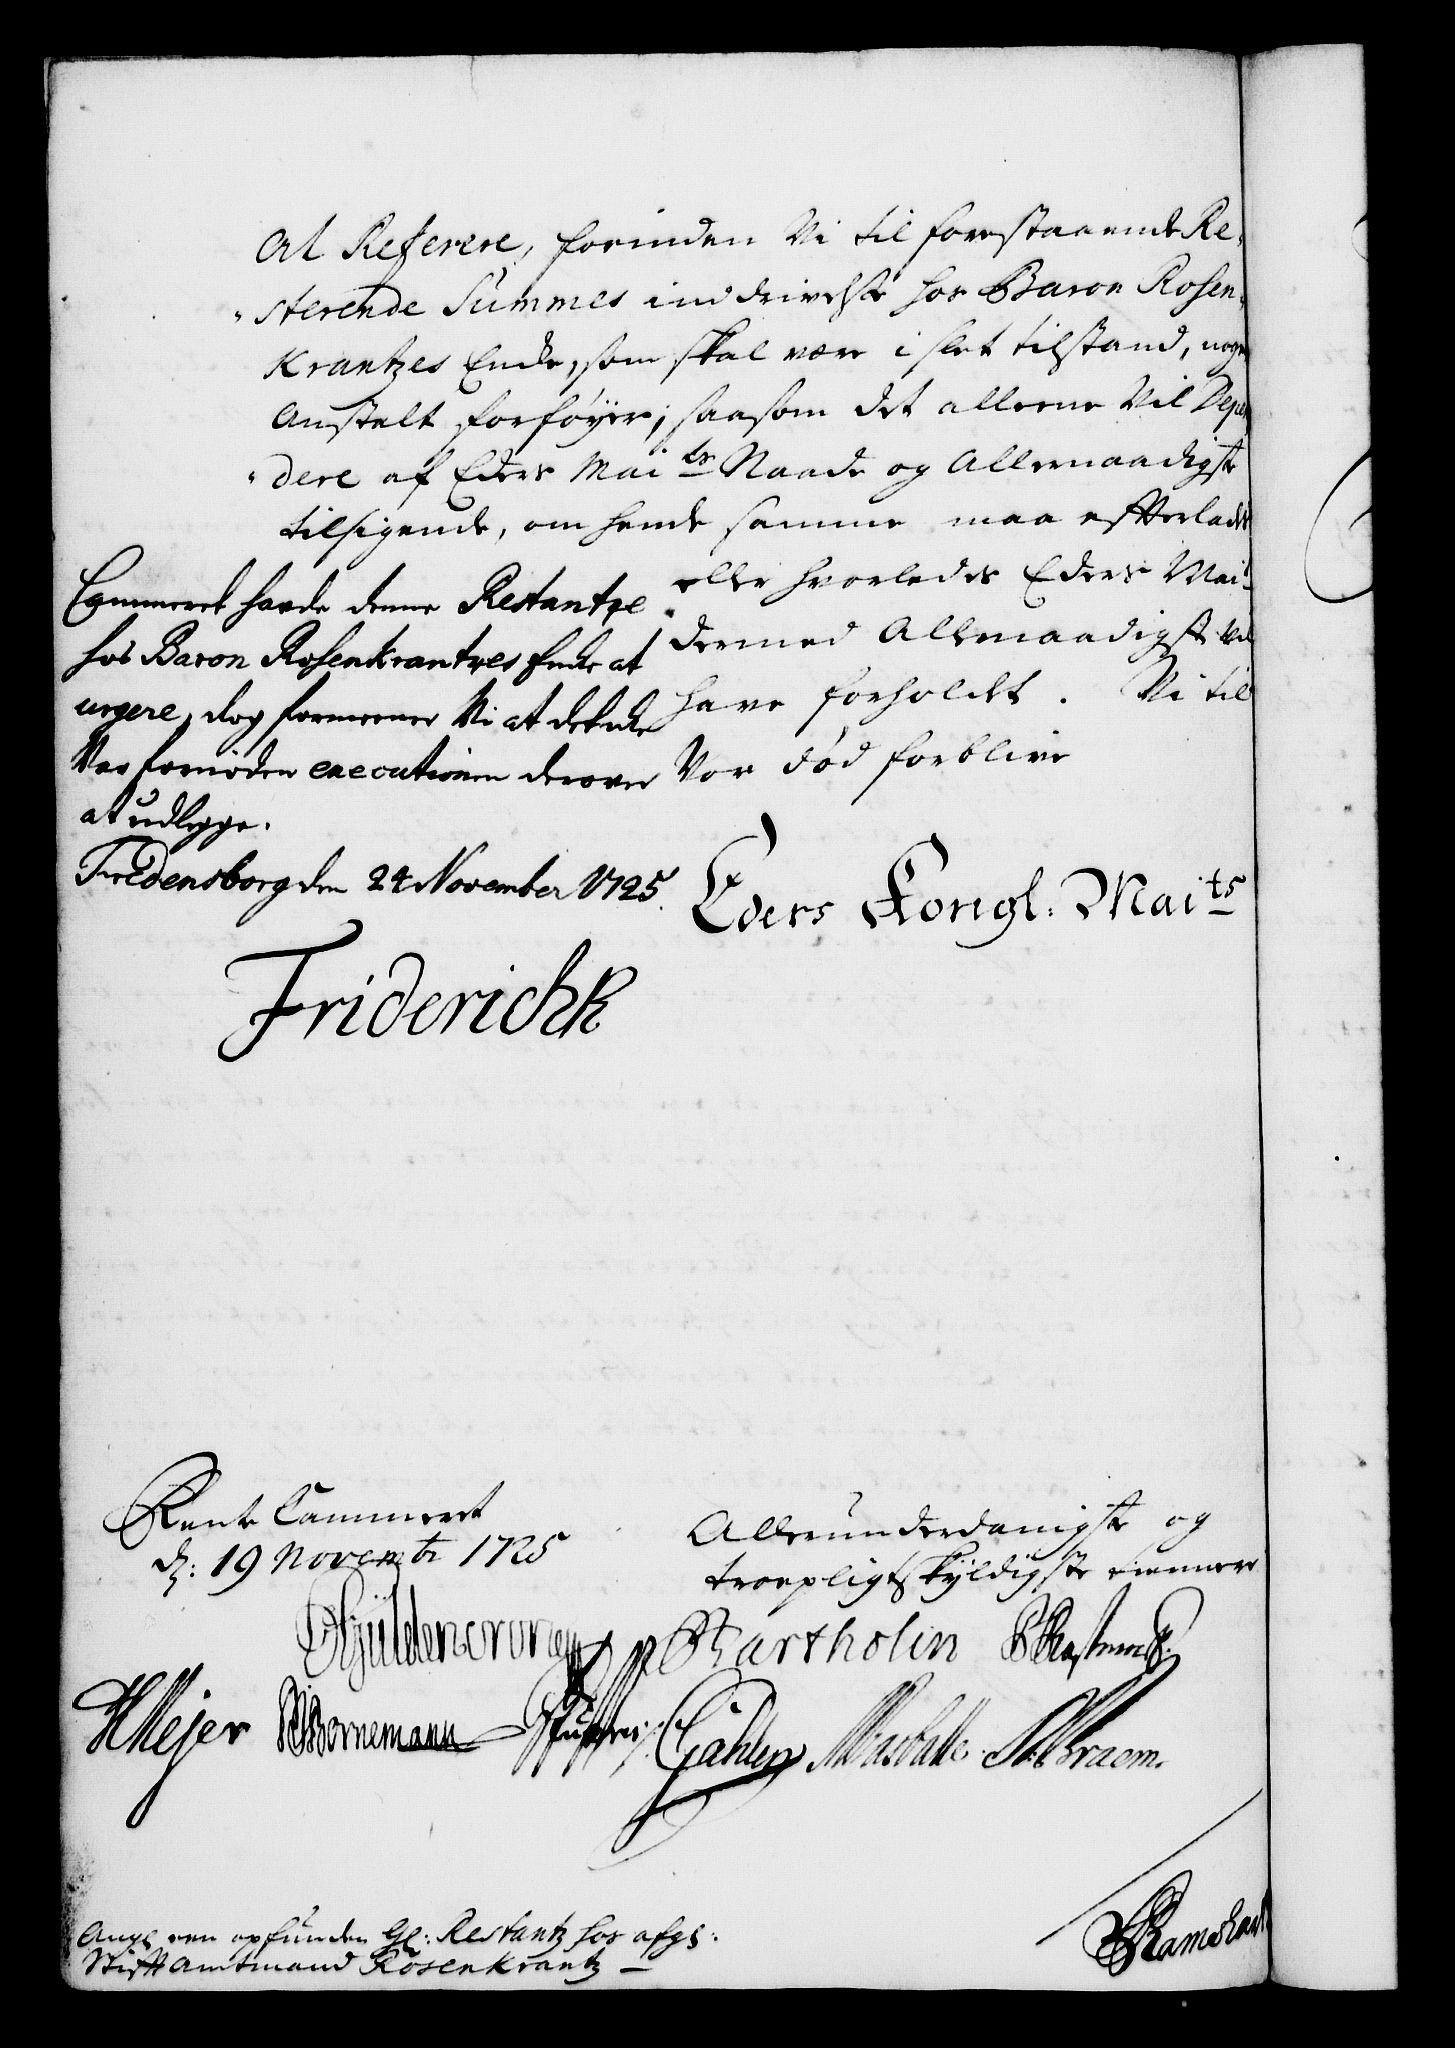 At Referere, forinden Vi til forestaaende Re-
sterende Summes inddrivelse hos Baron Rosen-
Krantzes Enke, som skal være i slet tilstand, nogen
Anstalt forføyer, saasom det alleene Vil Depen-
dere af Eders Maits Naade og Allernaadigste
tilsigende, om hende samme maa efterlades
eller hvorledes Eders Mait
dermed Allernaadigst vil
have forholdet. Vi til
Vor død forblive
Cammeret havde denne Restantze
hos Baron Rosenkrantzes Enke at
urgere, dog formeener Vi at det icke
Var fornøden executionen derover
at udlegge.
Fredensborg den 24 November 1725.
Friderich R
Eders Kongl: Maits
Rente Cammeret
d: 19 Novembr 1725
Allerunderdanigste og
troepligtskyldigste tienere
Güldencrone Bartholin
HMejer Bornemann Gâhler Braem.
Ang: een opfunden Gl: Restantz hos afg:
Stift Amtmand Rosenkrantz
Ramshart